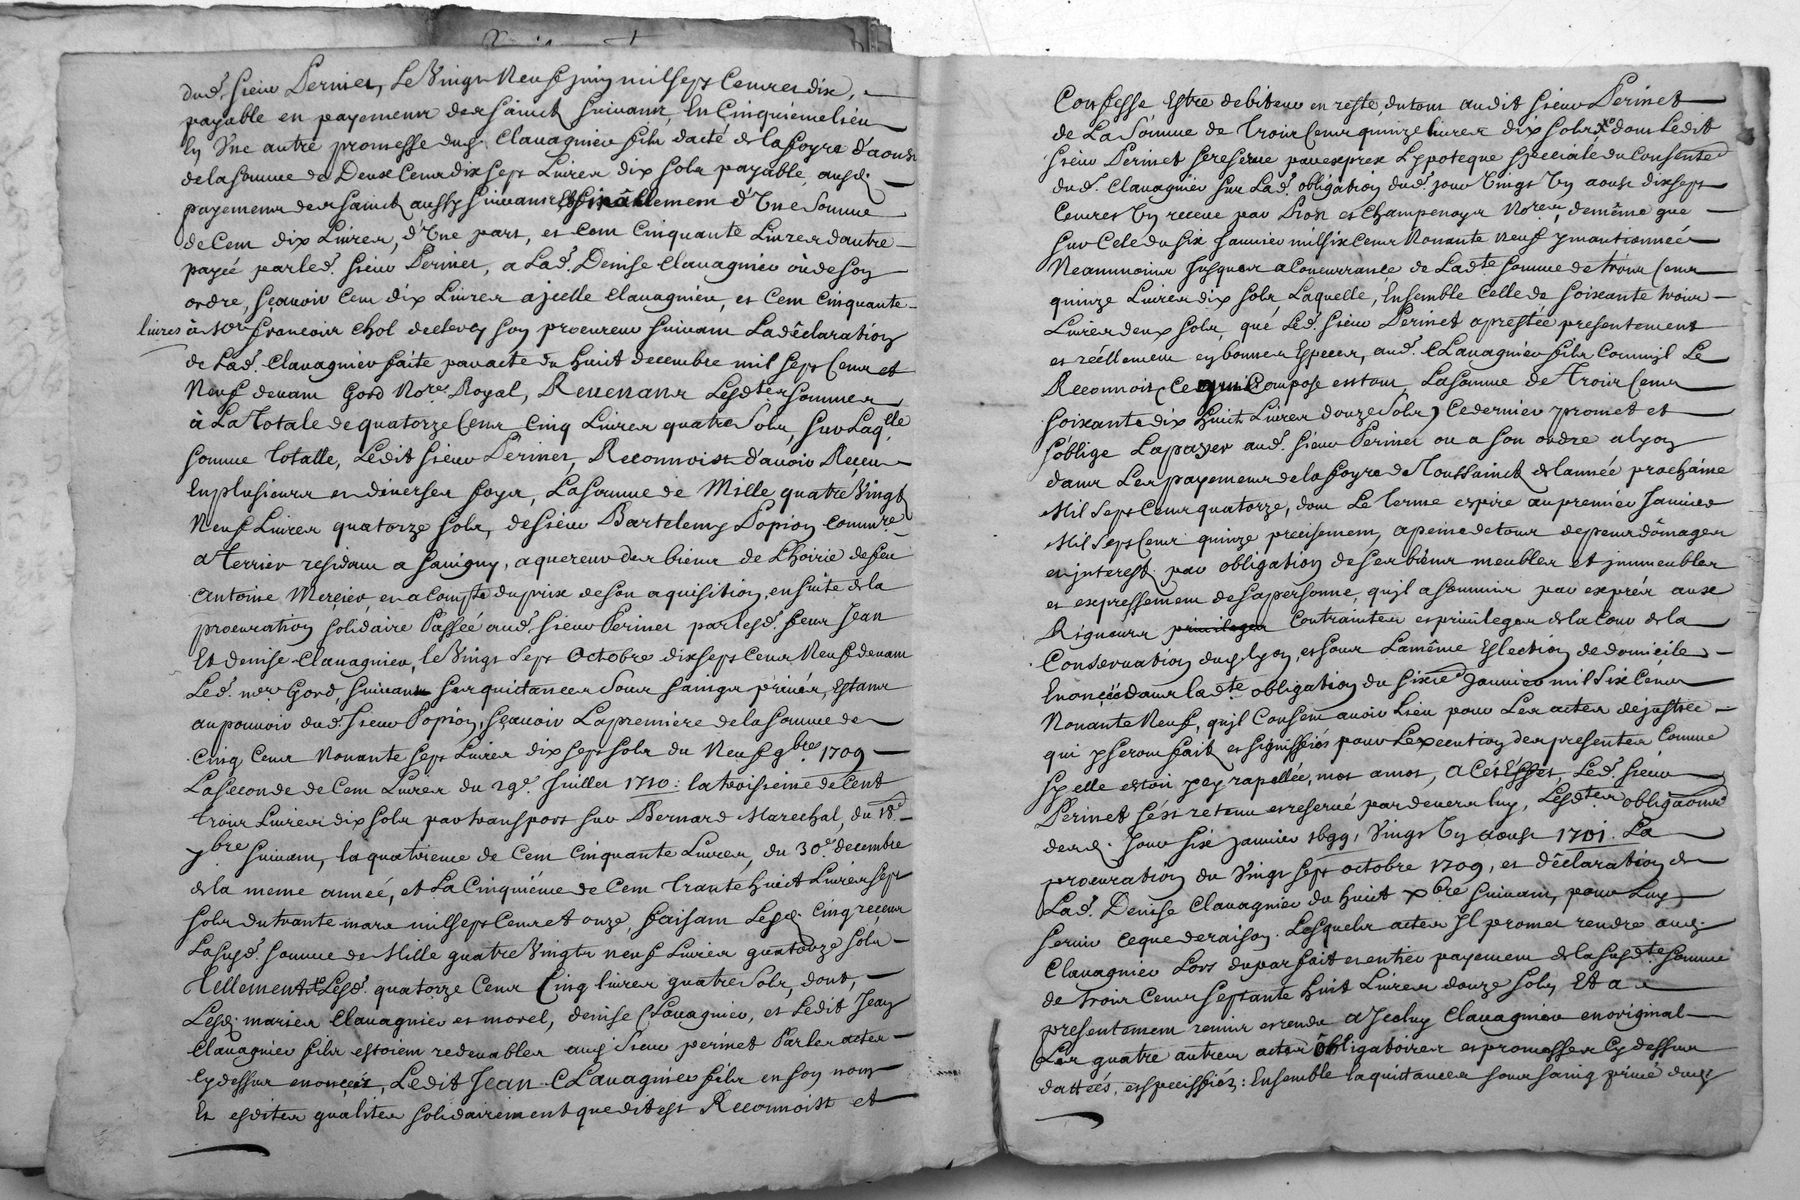 dud. sieur Perinet, Le Vingt Neuf juin mil sept Cent et dix,
payable en payement des saincts suivant, En Cinquieme lieu
En Une autre promesse dud. Clavagnieu fils datté de la foyre d'aoust
de la somme de Deux Cent dix sept Livres dix sols payable aud.
payement des saincts aussy suivant Et finallement d'Une Somme
de Cent dix Livres, d'Une part, et Cent Cinquante Livres d'autre
payée par led. sieur Perinet, a Lad. Denise Clavagnieu où de son
ordre, sçavoir Cent dix Livres a jcelle Clavagnieu, et Cent Cinquante
livres à Francois Chol declercq son procureur suivant La dêclaration
de Lad. Clavagnieu faite par acte du huit decembre mil sept Cent et
Neuf devant Gord Nore. Royal, Revenant Lesdtes sommes
à La Totale de quatorze Cent Cinq Livres quatre Sols, sur Laqlle
somme totalle, Ledit sieur Perinet, Reconnoist d'avoir Receu
En plusieurs et diverses foyes, La somme de Mille quatre Vingt
Neuf Livres quatorze sols, de sieur Bartelemy Popion Commre
a Terrier residant a savigny, aquereur des biens de L'hoirie de feu
Antoine Mercier, et a Compte du prix de son aquisition, en suite de la
procuration solidaire Passée aud. sieur Perinet par lesd. sieur Jean
Et Denise Clavagnieu, le Vingt Sept Octobre dix sept Cent Neuf devant
Led. nore Gord, suivant ses quittances Sous saings privés, Estant
au pouvoir dud. sieur Popion, sçavoir La premiere de la somme de
Cinq Cent Nonante sept Livres dix sept sols du Neuf 9bre. 1709
La seconde de Cent Livres du 29e. Juillet 1710: la troisieme de Cent
trois Livres dix sols par transport sur Bernard Marechal, du 18e
7bre suivant, la quatrieme de Cent Cinquante Livres, du 30e. decembre
de la meme année, et La Cinquiéme de Cent Trante huit Livres sept
sols du trante mars mil sept Cent et onze, faisant Lesd. Cinq receus
La susd. somme de Mille quatre Vingts neuf Livres quatorze sols
Tellement Lesd. quatorze Cent Cinq livres quatre Sols, dont,
Lesd. mariés Clavagnieu et morel, denise Clavagnieu, et Ledit Jean
Clavagnieu fils estoient redevables aud Sieur perinet Par les actes
Cy dessus enoncés, Ledit Jean Clavagnieu fils en son nom
Et esdites qualites solidairement que dit est Reconnoist et
Confesse Estre debiteur en reste, du tout audit sieur Perinet
de La Somme de Trois Cent quinze livres dix sols dont Ledit
sieur Perinet se reserve par exprex L'ypoteque speciale du Consentt
dud. Clavagnieu sur Lad. obligation dud. jour Vingt Un aoust dix sept
Cent et Un receue par Pron et Champenoys Nores, de même que
sur Cele du six Janvier mil six Cent Nonante neuf y mantionnée
Neanmoins Jusques a Concurrance de Ladte somme de trois Cent
quinze Livres dix sols, Laquelle, Ensemble Celle de soixante trois
Livres deux sols, que Led. sieur Perinet a prestée presentement
et réellement en bonnes Especes, aud. Clavagnieu fils Comm'jl Le
Reconnoit, Ce qui Compose en tout La somme de Trois Cent
soixante dix huit Livres douze Sols, Ce dernier promet et
s'oblige La payer aud. sieur Perinet ou a son ordre a Lyon
dans Les payement de la foyre de Toussainct de l'année prochaine
Mil Sept Cent quatorze, dont Le Terme expire au premier Janvier
Mil Sept Cent quinze precisement, a peine de tous depens dômages
et jnterest par obligation de ses biens meubles et jmmeubles
et expressement de sa personne, qu'jl a soumis par exprés aux
Rigueurs privileges Contraintes et privileges de la Cour de la
Conservation dud. Lyon, et sous La même Eslection de domicile
Enoncée dans ladte. obligation du sixie Janvier mil Six Cent
Nonante Neuf, qu'jl Consent avoir Lieu pour Les actes de justice
qui y seront faits et signiffiés pour L'execution des presentes, Comme
sy elle estoit pey rapellée, mot a mot, a Cet Effet, Led. sieur
Perinet s'est retenu et reservé par devers luy, Lesdtes obligaons
desd. Jour six janvier 1699, Vingt Un Aoust 1701. La
procuration du Vingt sept octobre 1709, et dêclaration de
Lad. Denise Clavagnieu du huit Xbre suivant, pour Luy
servir ce que de raison. Lesquels actes Jl promet rendre aud.
Clavagnieu Lors du parfait et entier payement de la susdte somme
de trois Cent septante huit Livres douze sols, Et a
presentement remis et rendu a Jceluy Clavagnieu en original
Les quatre autres actes obligatoires et promesses Cy dessus
dattés, et speciffiés: Ensemble la quittances sous saing privé dud